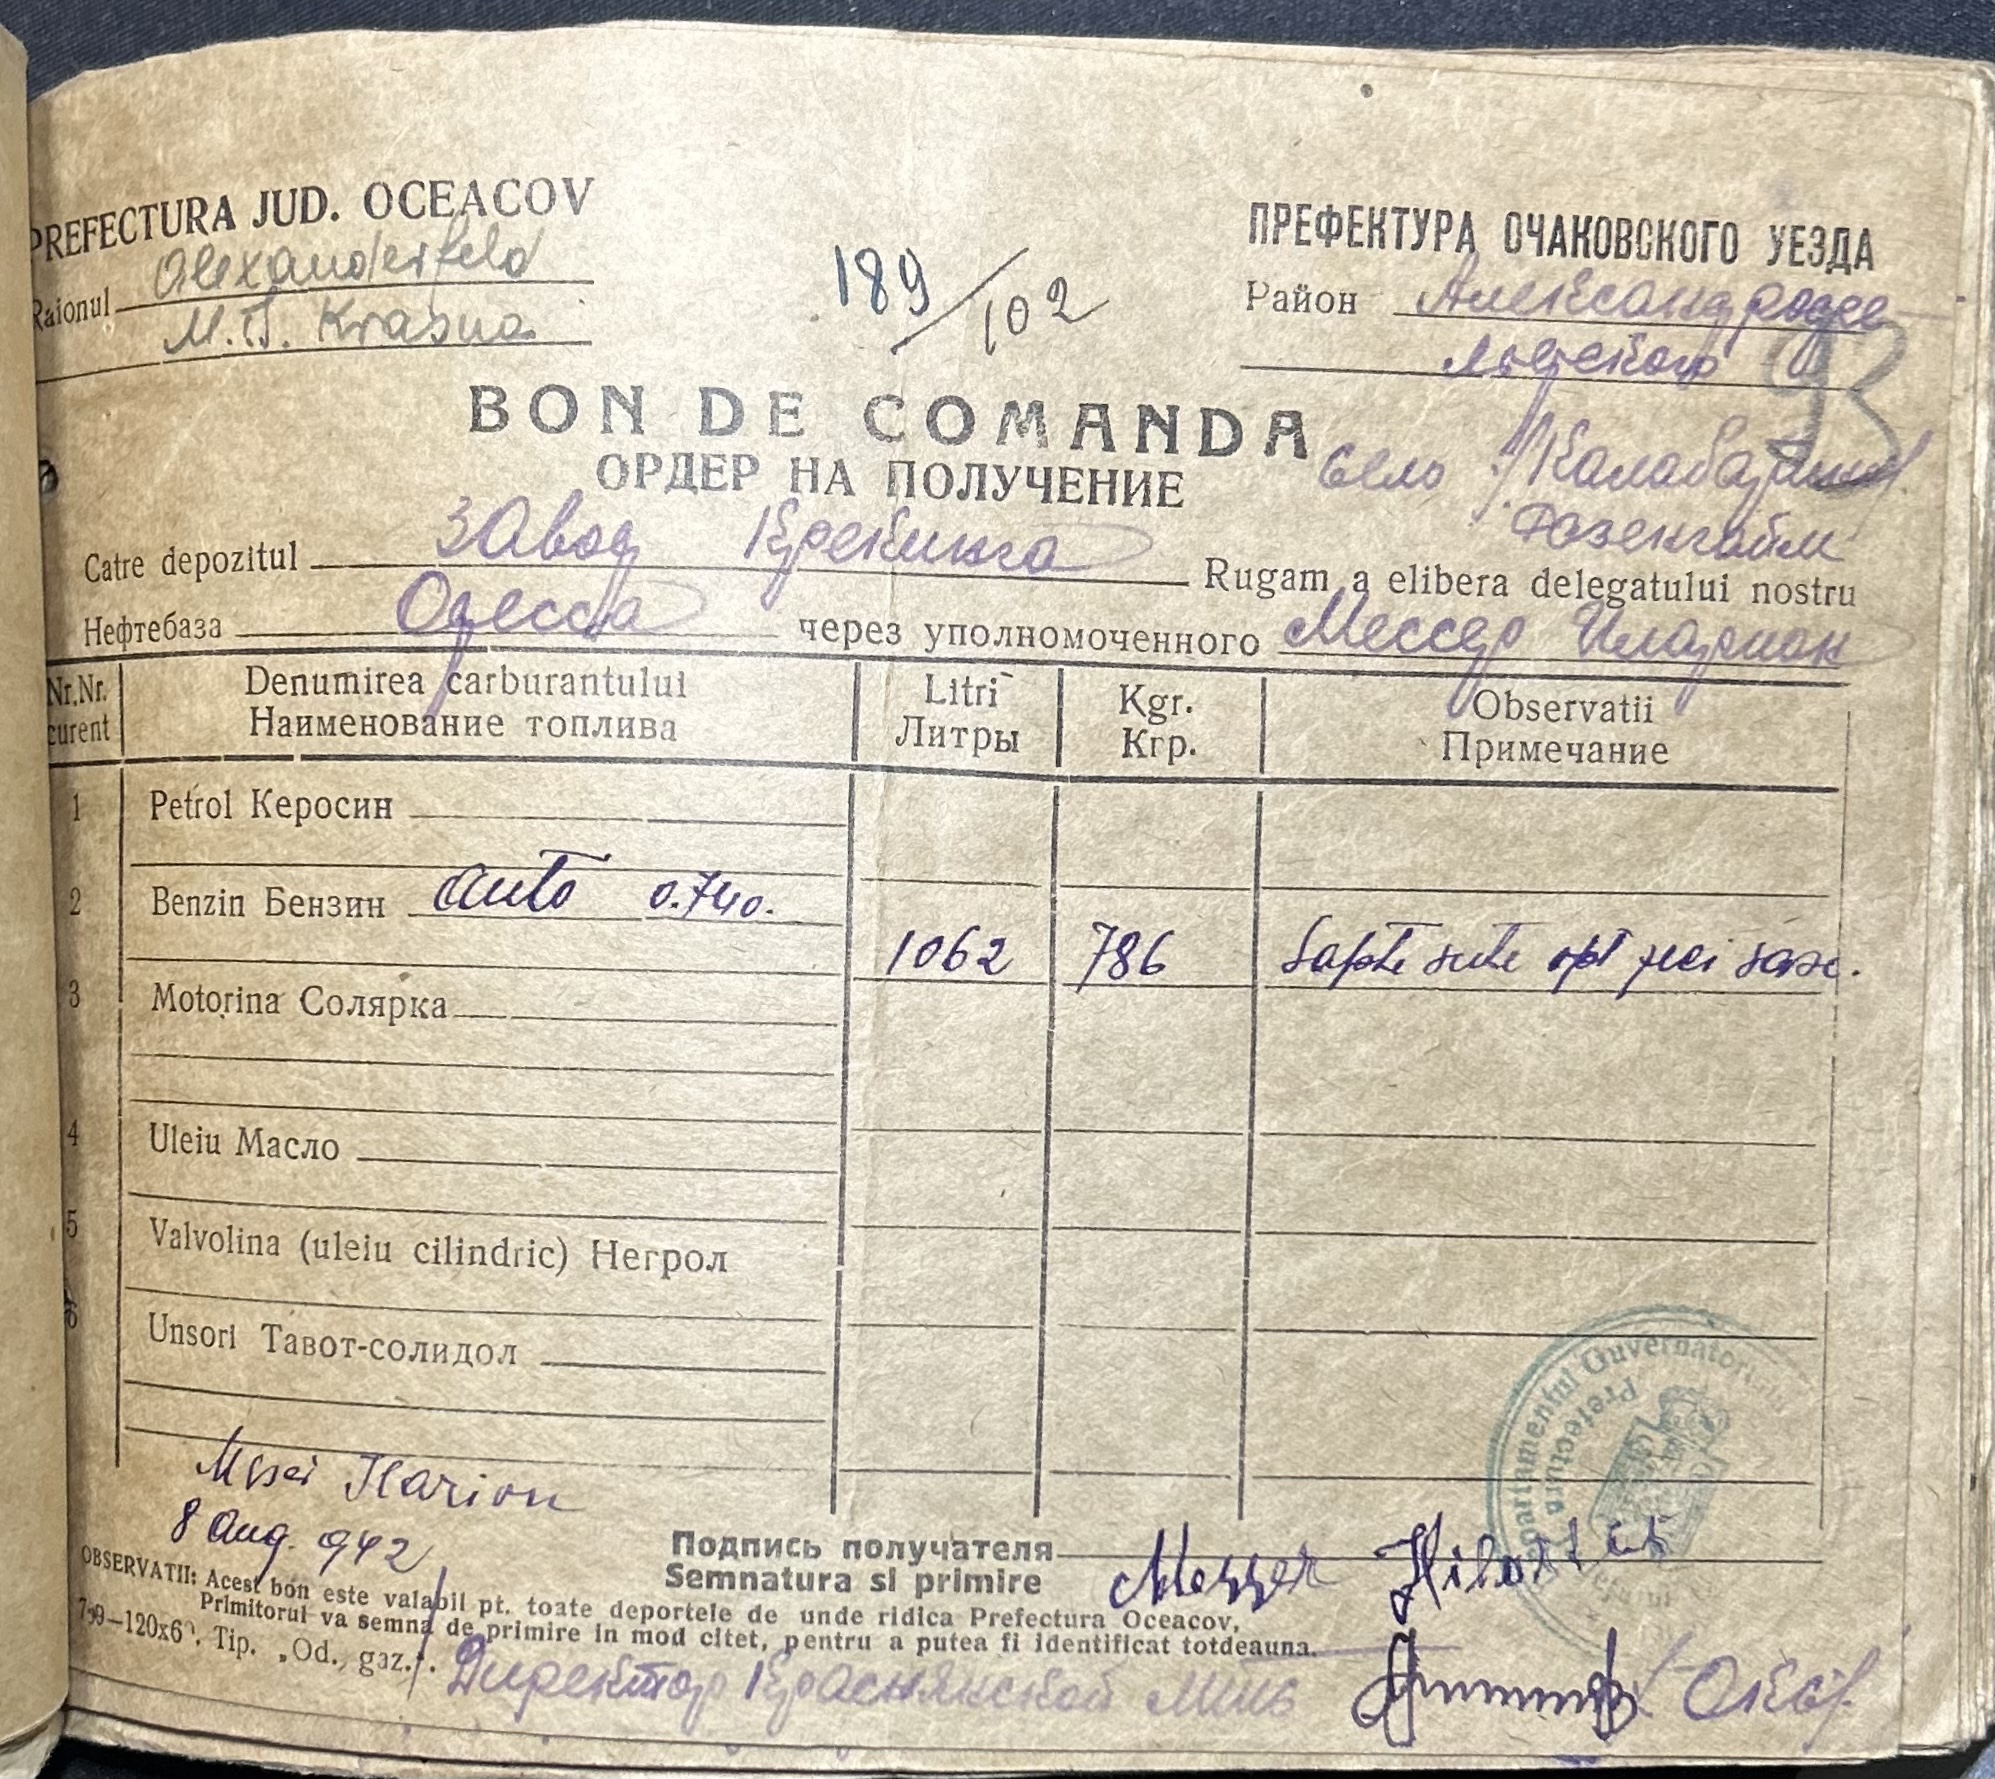 PREFECTURA JUD. OCEACOV
Raionul Alexanderfeld
M.T. Krasna
189/102
ПРЕФЕКТУРА ОЧАКОВСКОГО УЕЗДА
Район Александрфе-
льдского
93
BON DE COMANDA
ОРДЕР НА ПОЛУЧЕНИЕ
село
Розенгайм
Catre depozitul Завод Крекинга Rugam a elibera delegatului nostru
Нефтебаза Одесса через уполномоченного Мессер Иларион
Nr.Nr. curent
Denumirea carburantului
Наименование топлива
Litri
Литры
Kgr.
Кгр.
Observatii
Примечание
1 Petrol Керосин
2 Benzin Бензин auto 0.740.
1062 786 Sapte sute opt zeci sase.
3 Motorina Солярка
4 Uleiu Масло
5 Valvolina (uleiu cilindric) Негрол
6 Unsori Тавот-солидол
Ilarion
8 Aug. 942
Подпись получателя
Semnatura si primire
Messer
OBSERVATII: Acest bon este valabil pt. toate deportele de unde ridica Prefectura Oceacov,
Primitorul va semna de primire in mod citet, pentru a putea fi identificat totdeauna.
799—120x6. Tip. „Od. gaz.".
Директор Краснянской
Guvernatorului
Prefectura